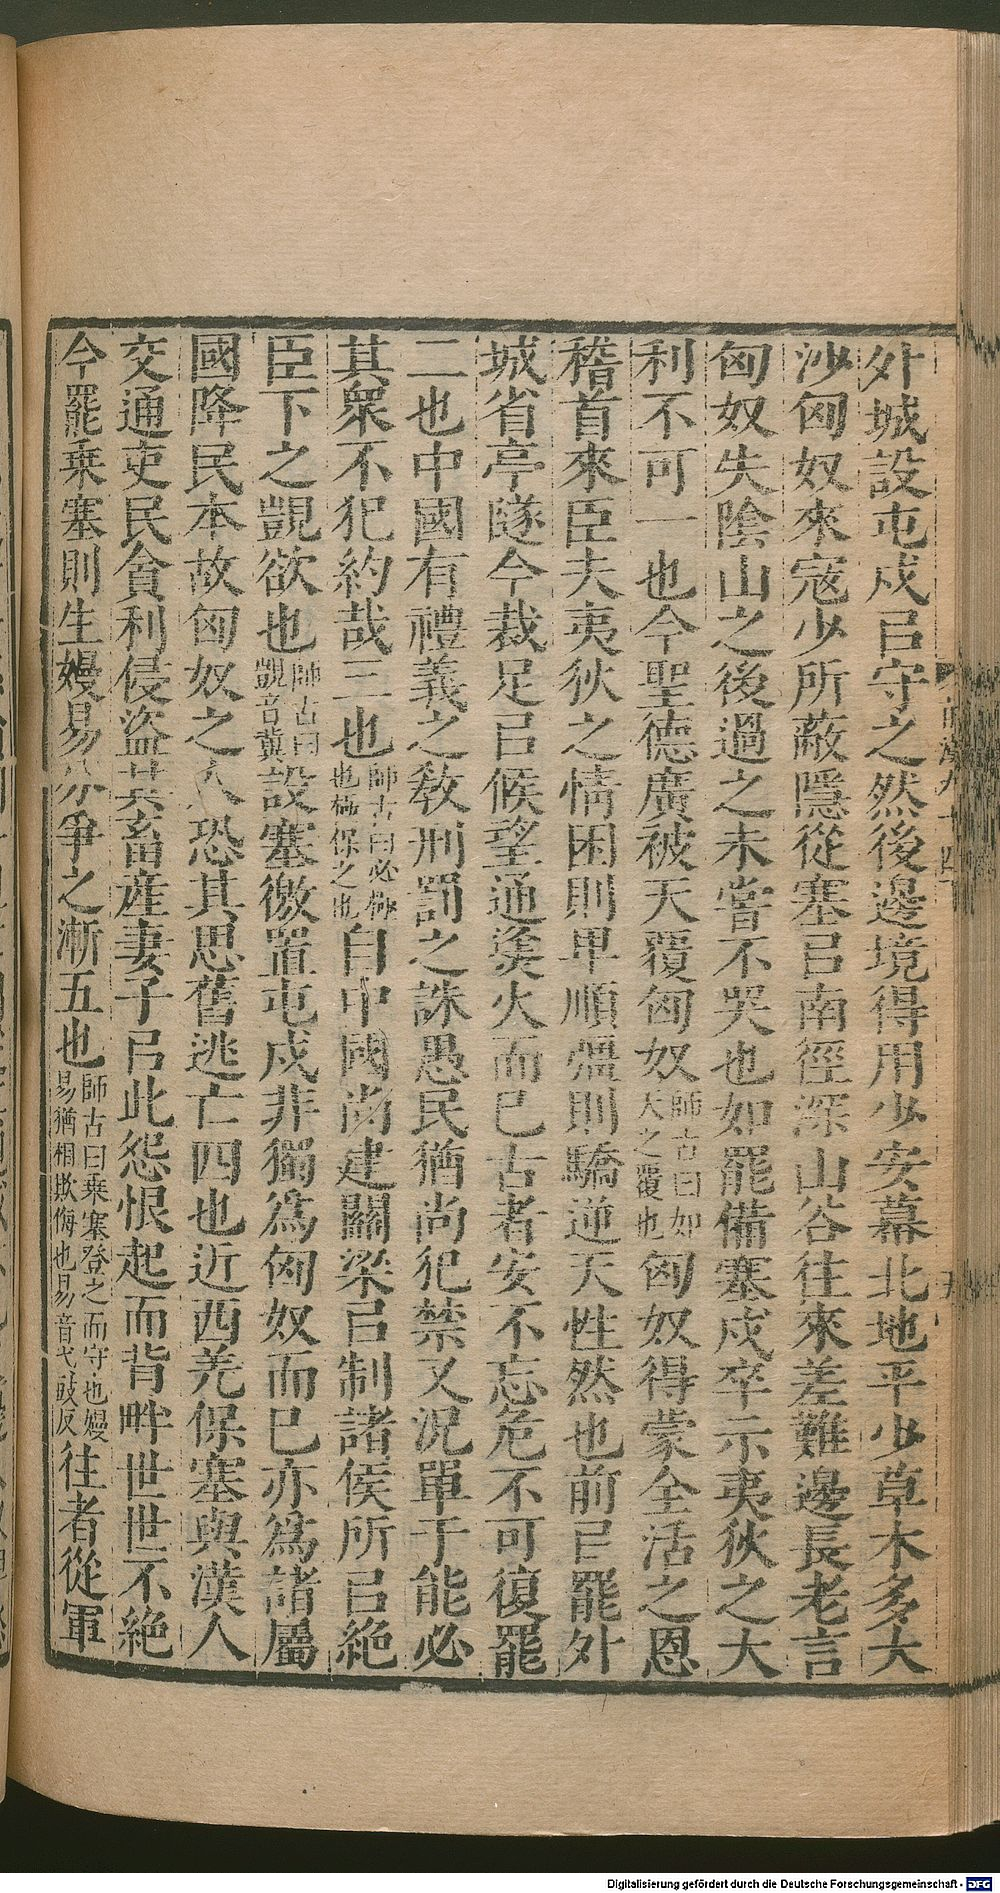 外城設屯戍㠯守之然後邊境得用少安幕北地平少草木多大
沙匈奴來寇少所蔽隱從塞㠯南徑深山谷往來差難邊長老言
匈奴失陰山之後過之未嘗不哭也如罷備塞戍卒示夷狄之大
利不可一也今聖德廣被天覆匈奴師古曰如天之覆也匈奴得蒙全活之恩
稽首來臣夫夷狄之情困則卑順彊則驕逆天性然也前㠯罷外
城省亭隧今裁足㠯候望通熢火而已古者安不忘危不可復罷
二也中國有禮義之敎刑罰之誅愚民猶尚犯禁又況單于能必
其衆不犯約哉三也師古曰必極也極保之也自中國尚建關梁㠯制諸侯所㠯絕
臣下之覬欲也師古曰覬音冀設塞徼置屯戍非獨爲匈奴而已亦爲諸屬
國降民本故匈奴之人恐其思舊逃亡四也近西羌保塞與漢人
交通吏民貪利侵盗其畜產妻子㠯此怨恨起而背畔世世不絕
今罷乗塞則生嫚易分爭之漸五也師古曰乗塞登之而守也嫚易猶相欺侮也易音弋豉反往者從軍
Digitalisierung gefördert durch die Deutsche Forschungsgemeinschaft - DFG